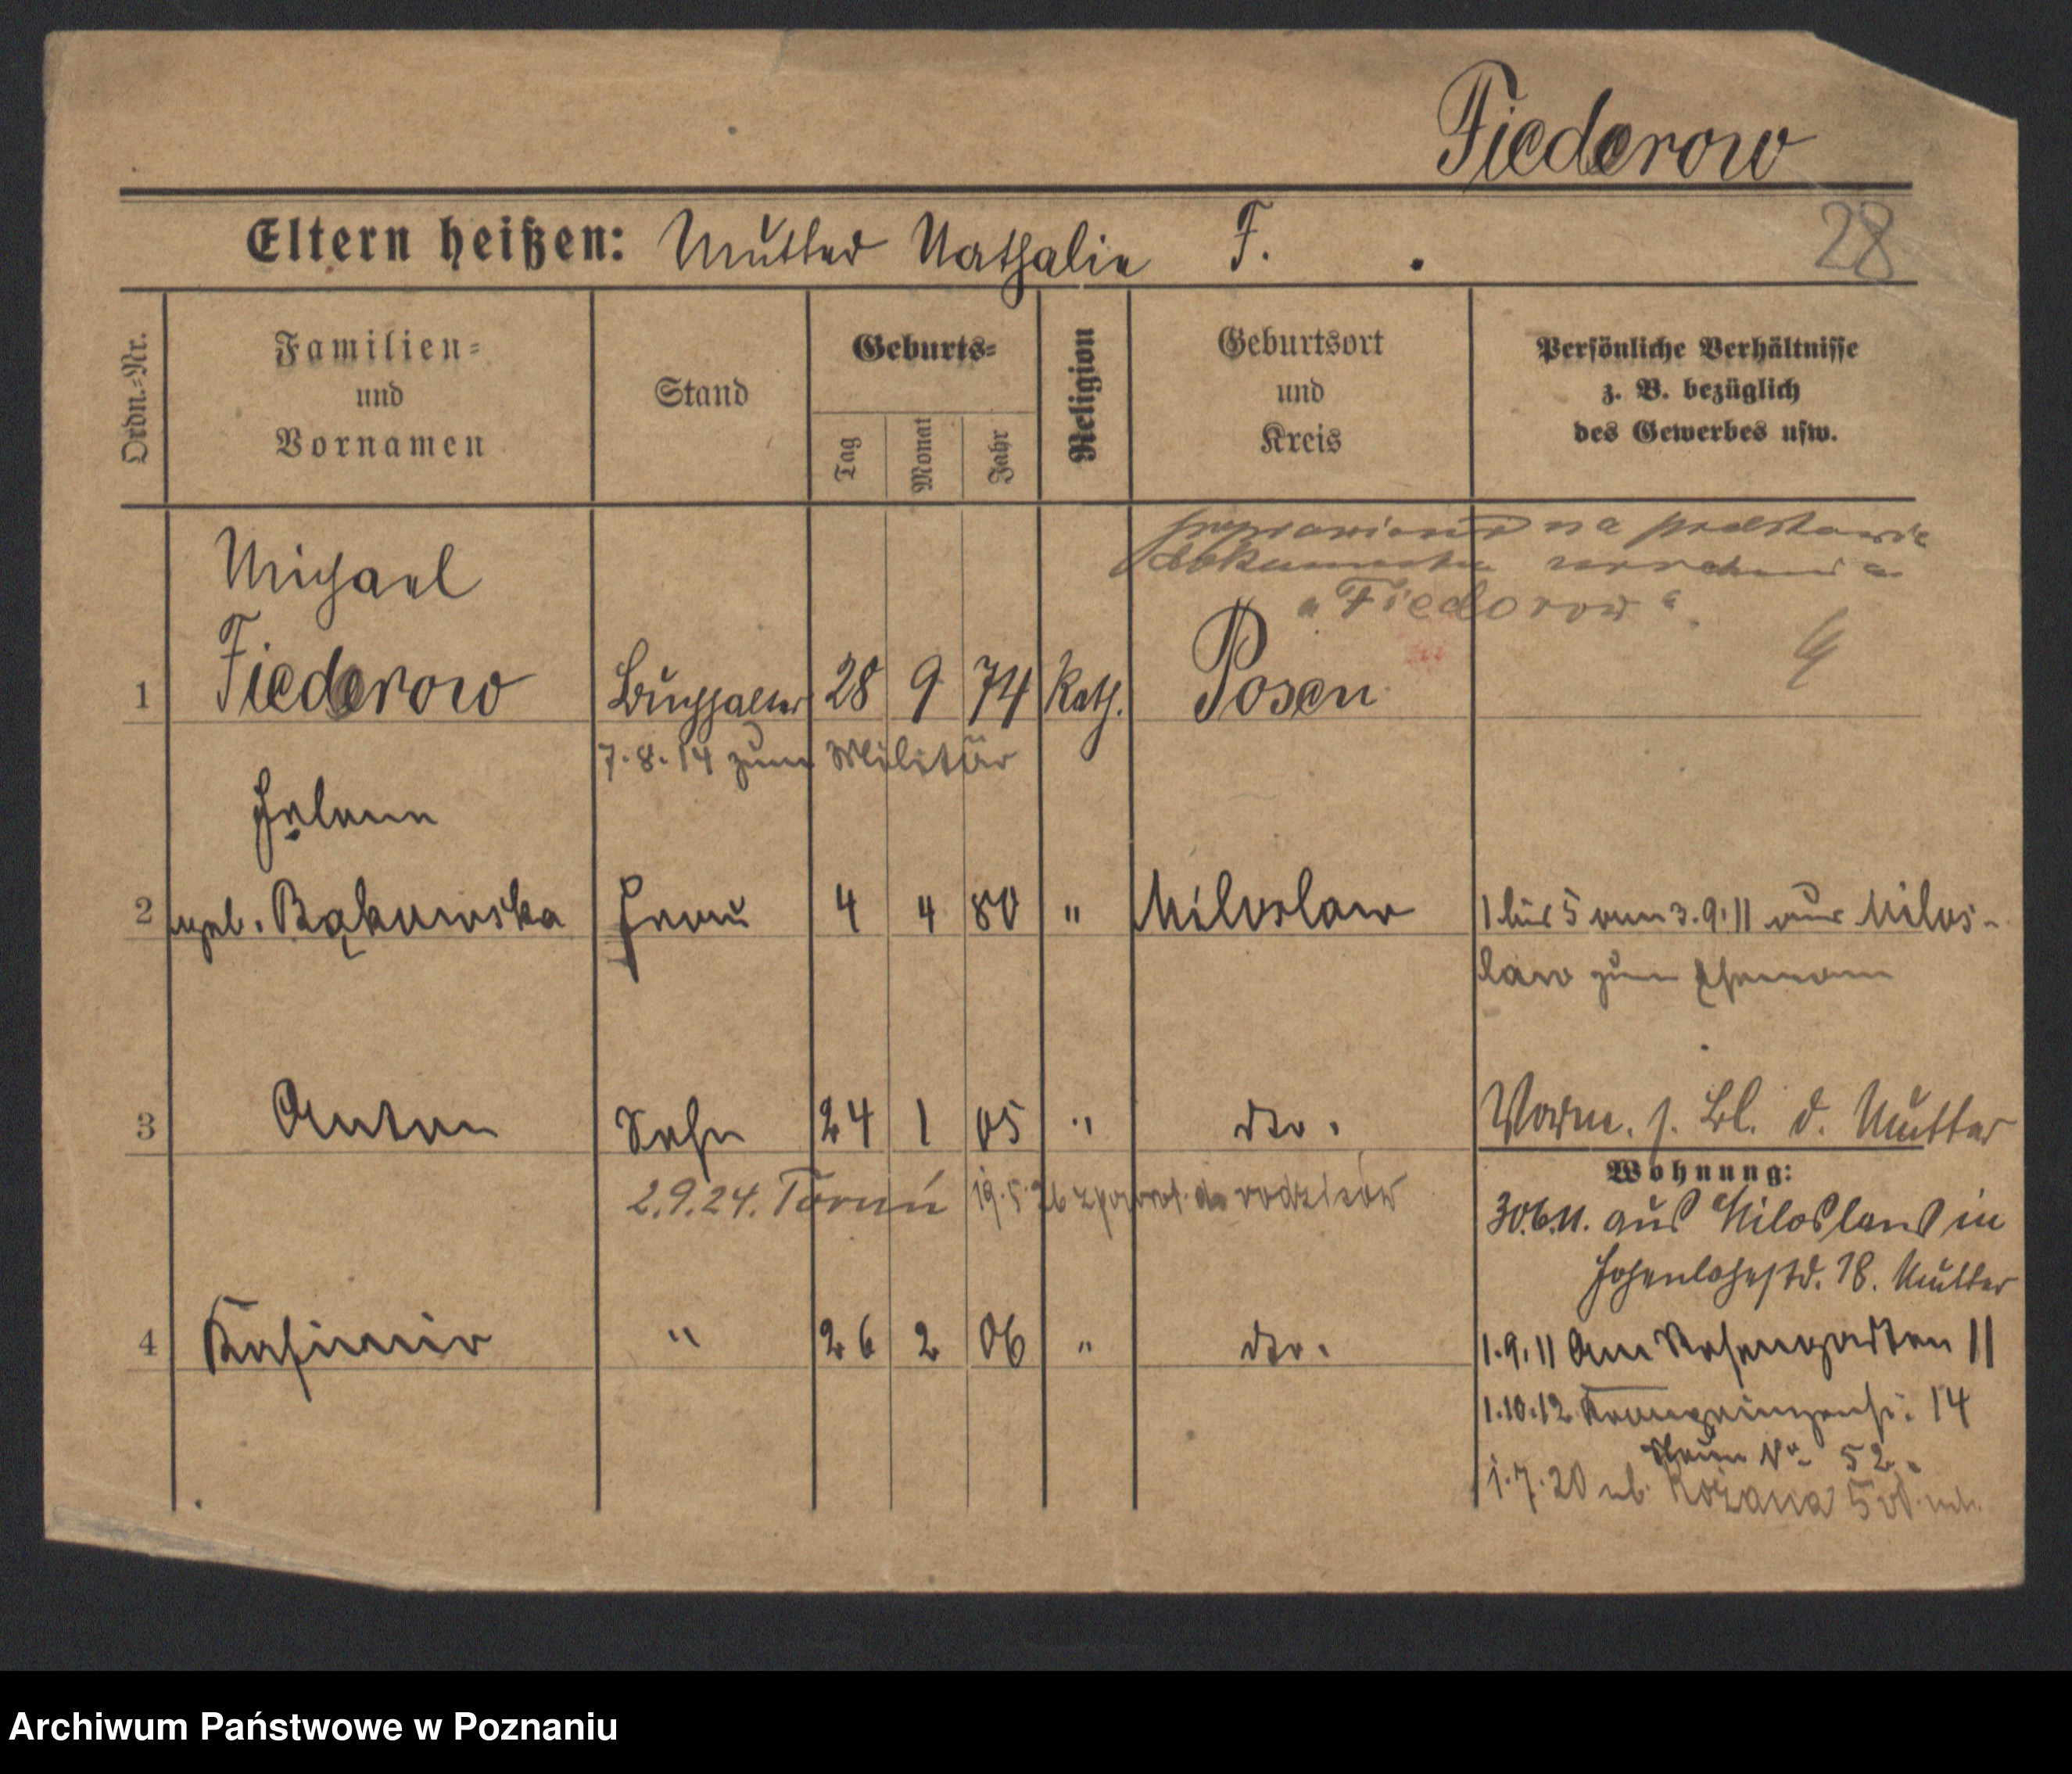 Fiederow
Eltern heißen: Mutter Nathalie F.
28
Ordn.=Nr.
Familien=
und
Vornamen
Stand
Geburts=
Tag
Monat
Jahr
Religion
Geburtsort
und
Kreis
Persönliche Verhältnisse
z. B. bezüglich
des Gewerbes usw.
poprawiono na podstawie
dokumentu
"Fiedorow"
Michael
1 Fiederow Buchhalter 28 9 74 Kath. Posen
7.8.14 zum Militär
Helene
2 geb. Bąkowska Frau 4 4 80 " Miloslaw 1 bis 5 am 3.9.11 aus Milos-
law zum Ehemann
3 Anton Sohn 24 1 05 " dto. Vorm. s. Bl. d. Mutter
2.9.24. Toruń 19.5.26 zpowrot. do rodziców
Wohnung:
30.6.11. aus Miloslaw in
Hohenlohestr. 18. Mutter
4 Kasimir " 26 2 06 " dto. 1.9.11 Am Rosengarten 11
1.10.12 Kronprinzenstr. 14
No 52.
1.7.20 ul. Różana 5
Archiwum Państwowe w Poznaniu